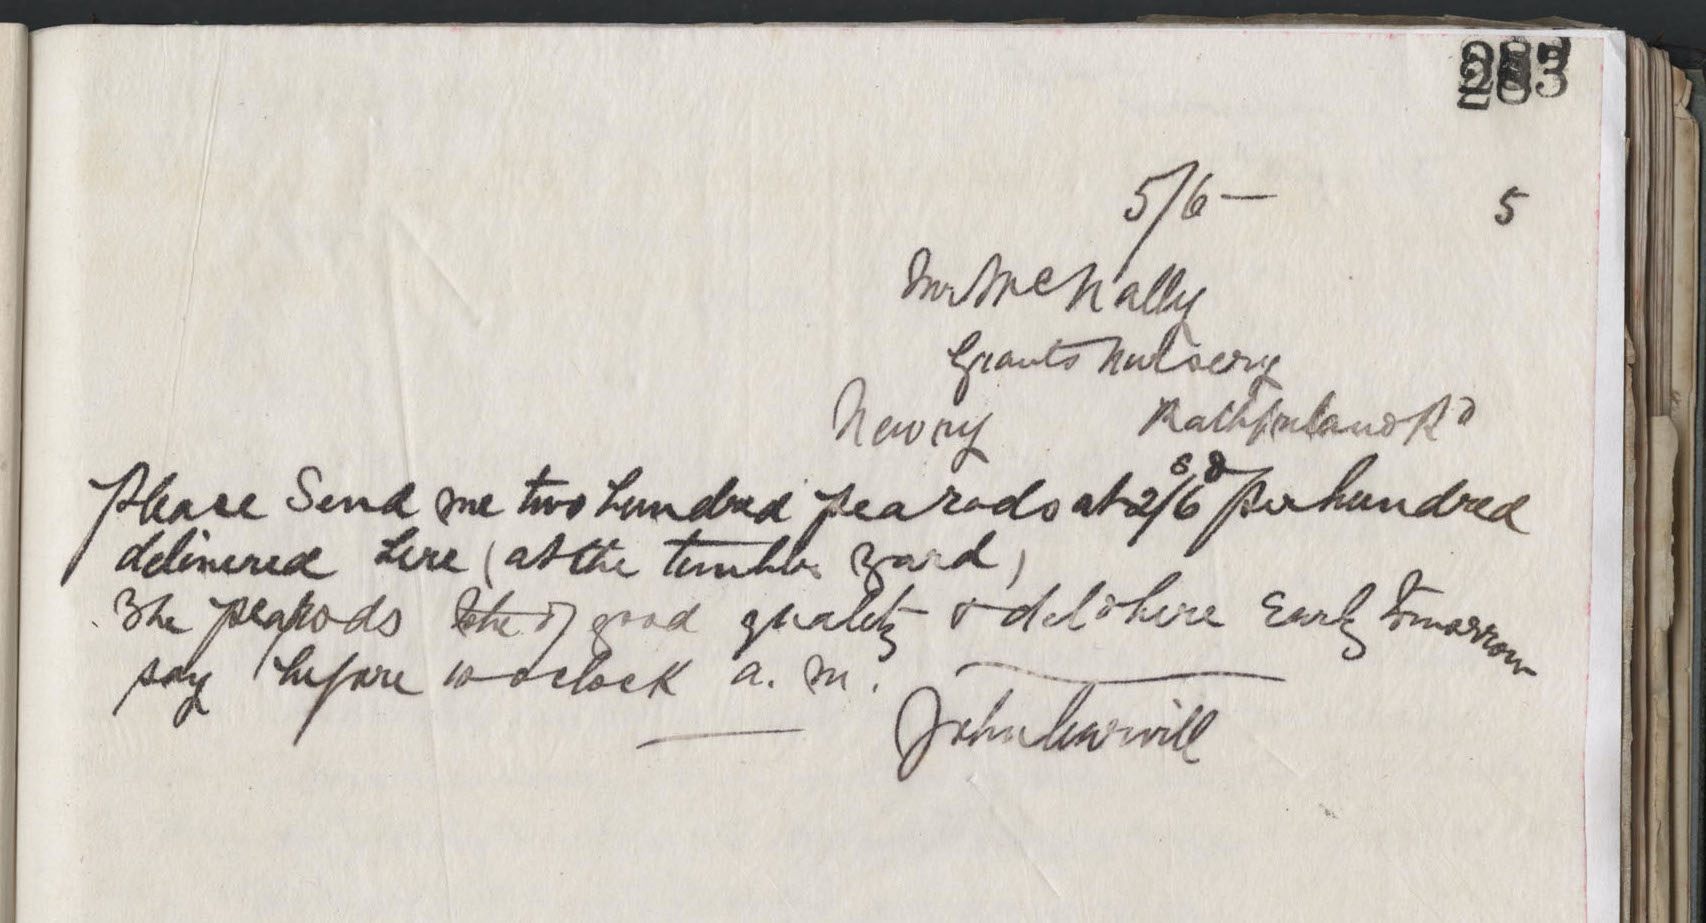 5/6 — 5
Mr McNally
Grants Nursery
Newry Rathfriland Rd
Please Send me two hundred pea rods at 2/6 s d per hundred
delivered here (at the timber yard)
The pea rods to be of good quality & deld here Early tomorrow
say before 10 oclock a. m.
John Carvill